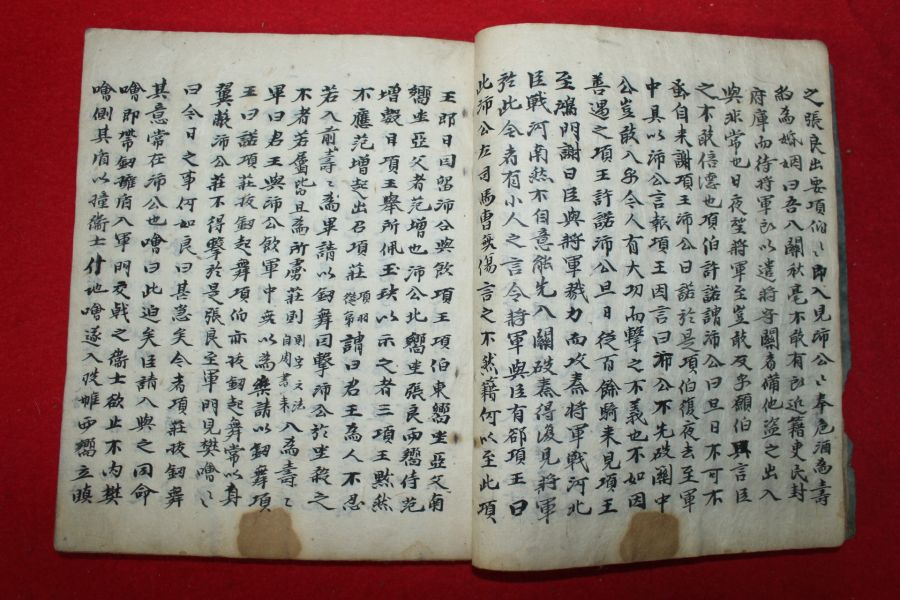 之張良出要項伯〻卽入見沛公〻奉卮酒爲壽
約爲婚姻曰吾入關秋毫不敢有所近籍吏民封
府庫而待將軍所以遣將守關者備他盜之出入
與非常也日夜望將軍至豈敢反乎願伯具言臣
之不敢倍德也項伯許諾謂沛公曰旦日不可不
蚤自來謝項王沛公曰諾於是項伯復夜去至軍
中具以沛公言報項王因言曰沛公不先破關中
公豈敢入乎今人有大功而擊之不義也不如因
善遇之項王許諾沛公旦日從百餘騎來見項王
至鴻門謝曰臣與將軍戮力而攻秦將軍戰河北
臣戰河南然不自意能先入關破秦得復見將軍
於此今者有小人之言令將軍與臣有郤項王曰
此沛公左司馬曹無傷言之不然籍何以至此項
王卽日因留沛公與飮項王項伯東嚮坐亞父南
嚮坐亞父者范增也沛公北嚮坐張良西嚮侍范
增數目項王擧所佩玉玦以示之者三項王黙然
不應范增起出召項莊項羽從弟謂曰君王爲人不忍
若入前壽〻爲畢請以劒舞因擊沛公於坐殺之
不者若屬皆且爲所虜莊則則字文法自尙書來入爲壽〻
畢曰君王與沛公飮軍中無以爲樂請以劒舞項
王曰諾項莊拔劒起舞項伯亦拔劒起舞常以身
翼蔽沛公莊不得擊於是張良至軍門見樊噲〻
曰今日之事何如良曰甚急矣今者項莊拔劒舞
其意常在沛公也噲曰此迫矣臣請入與之同命
噲卽帶劒擁盾入軍門交戟之衞士欲止不內樊
噲側其盾以撞衞士仆地噲遂入披帷西嚮立瞋